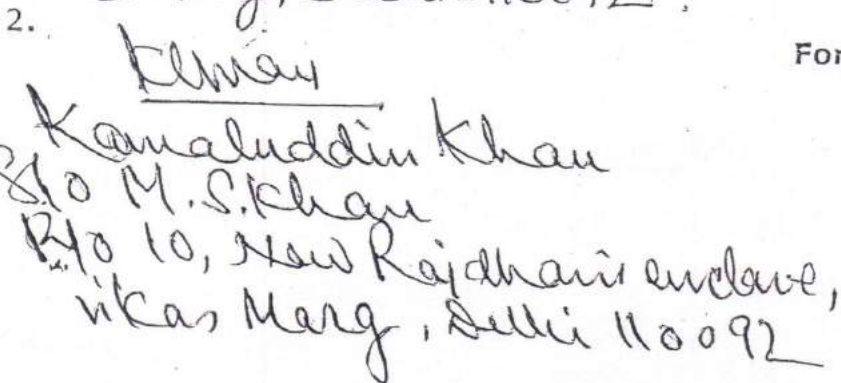 110092.
2.
For
Kamaluddin Khan
S/o M.S. Khan
R/o 10, New Rajdhani enclave,
vikas Marg, Delhi 110092